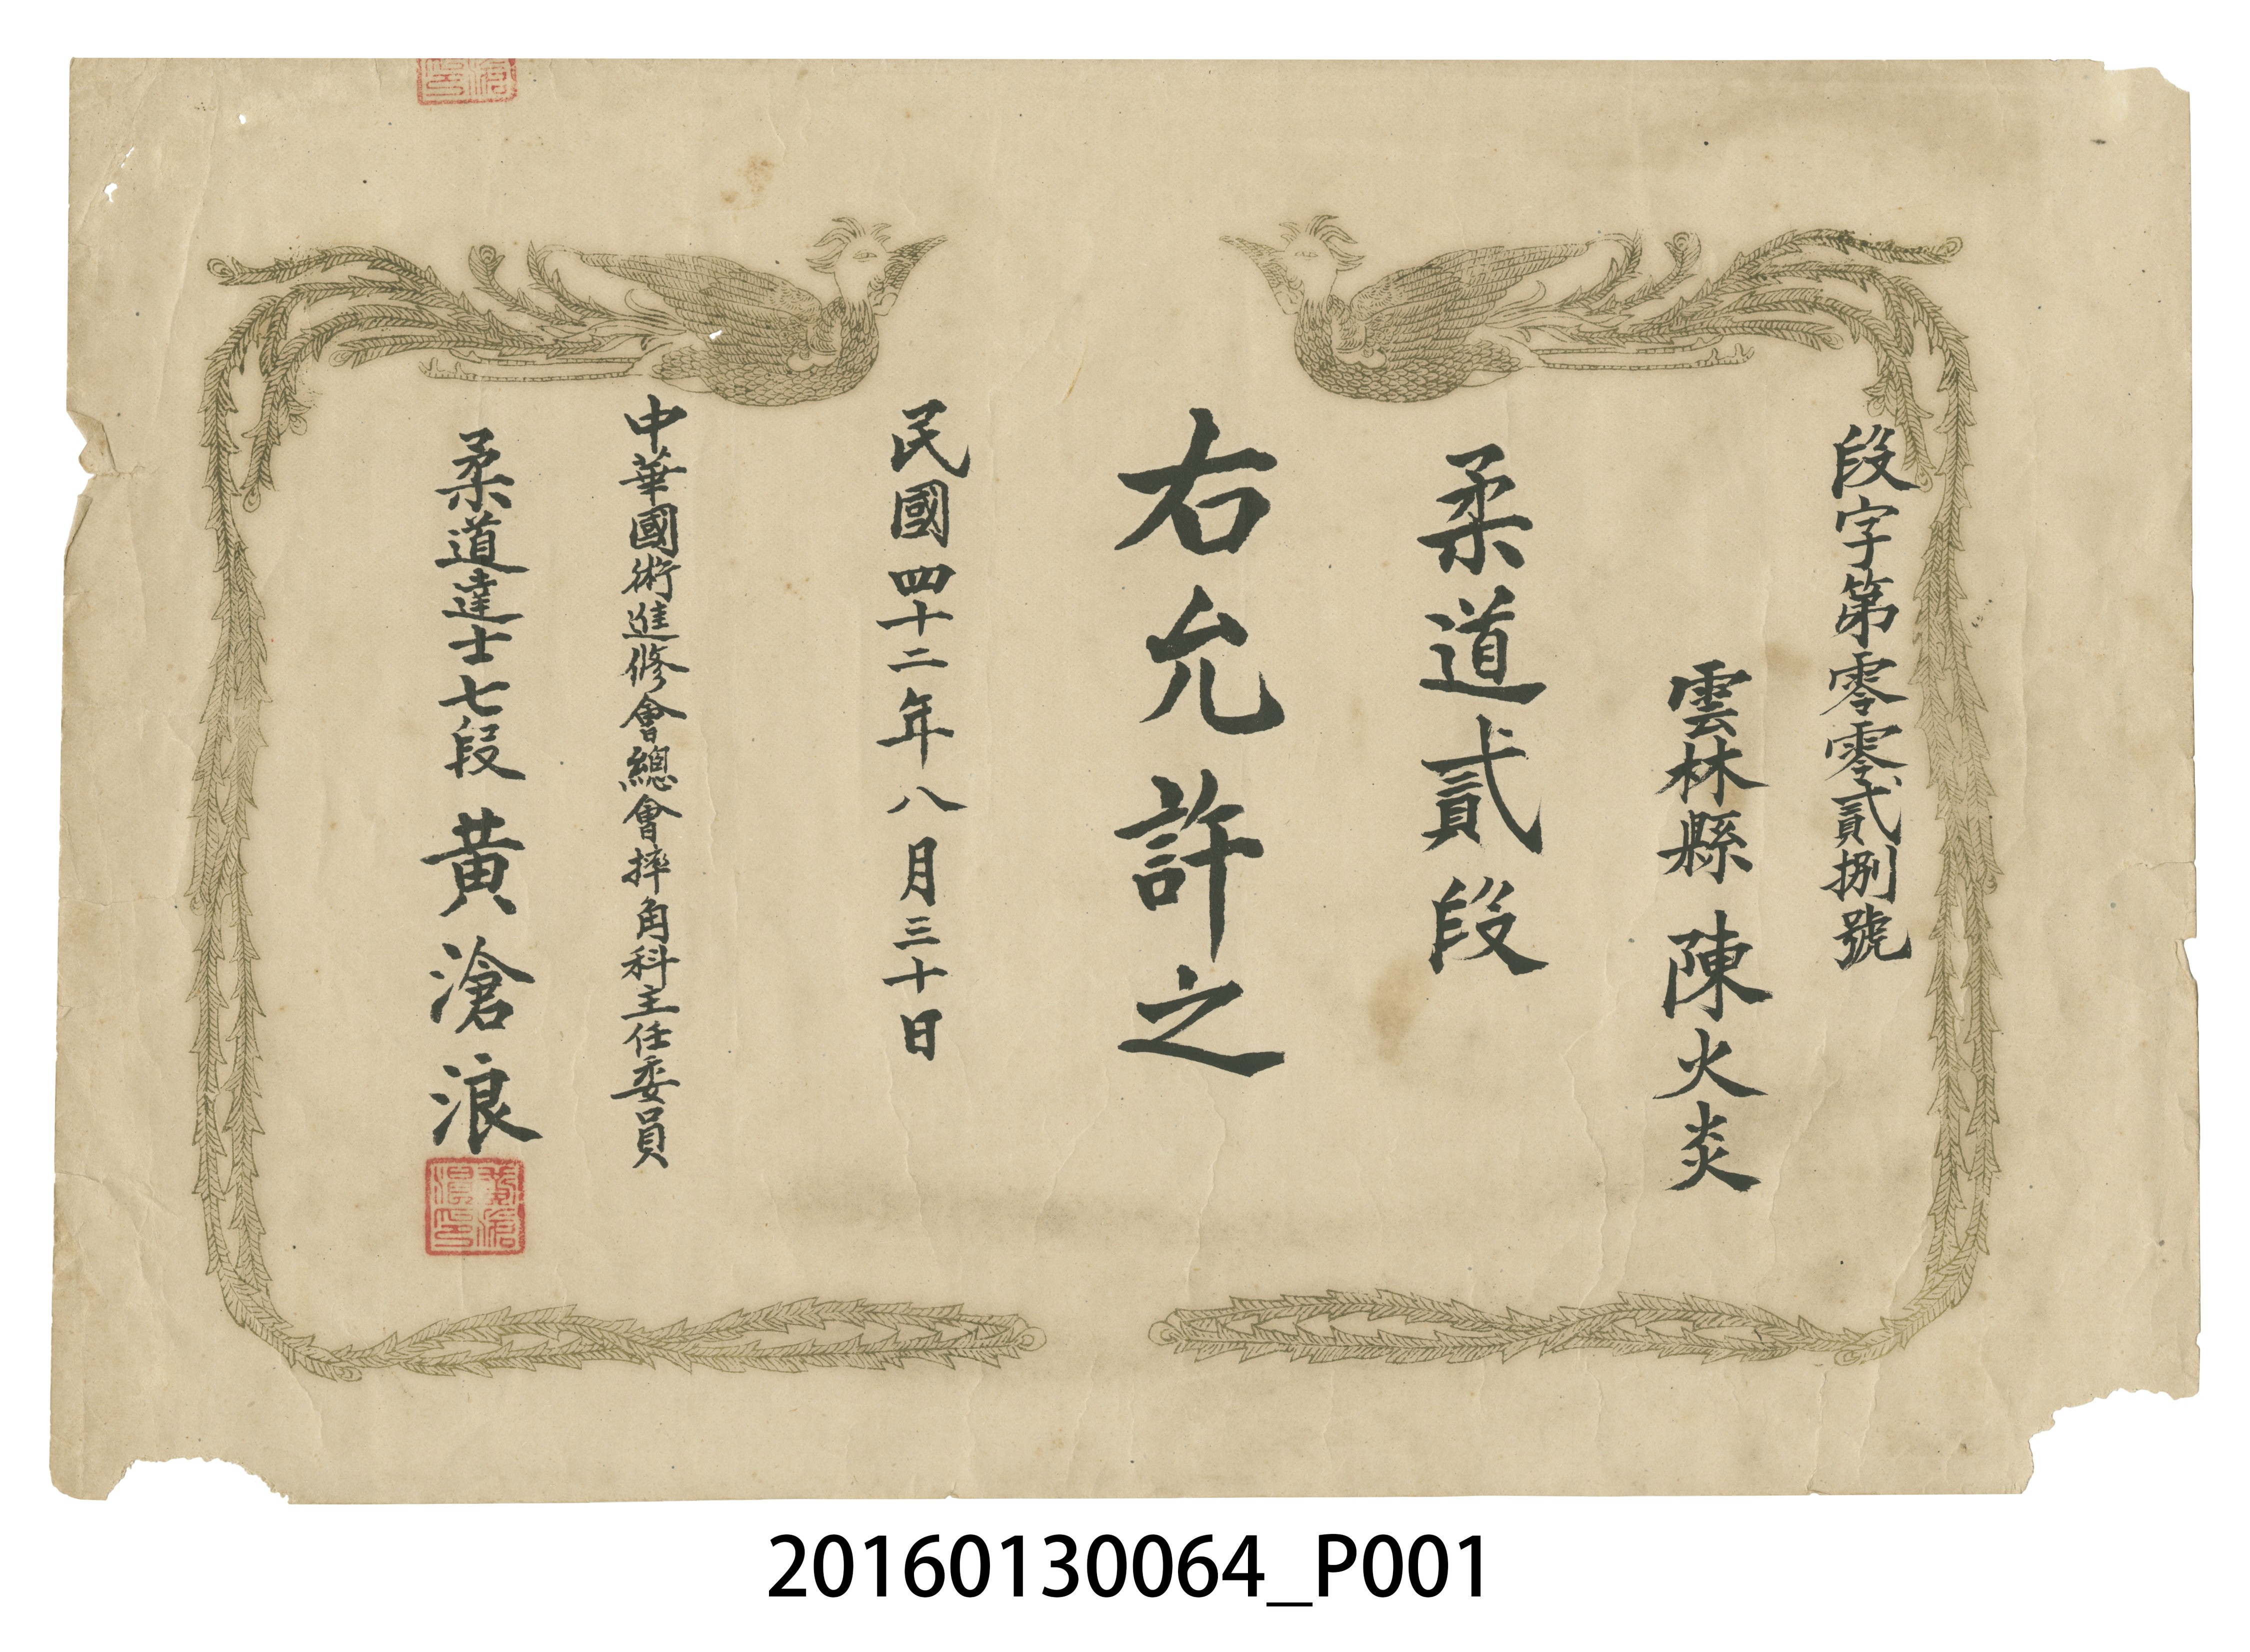 段字第零零貳捌號
雲林縣 陳火炎
柔道貳段
右允許之
民國四十二年八月三十日
中華國術進修會總會摔角科主任委員
柔道達士七段 黃滄浪
黃滄浪印
20160130064_P001